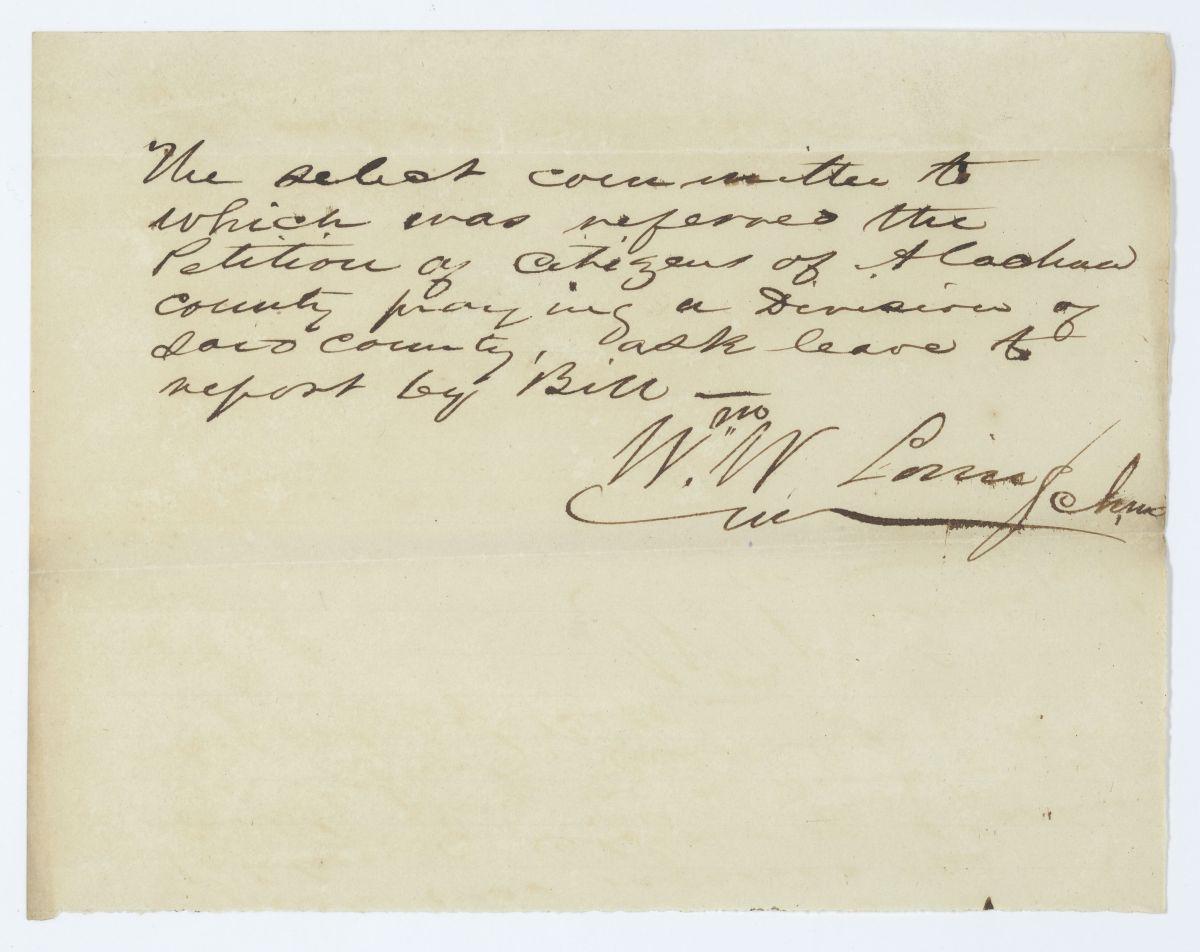 The select committee to
which was referred the
Petition of citizens of Alachua
county praying a Division of
said county, ask leave to
report by Bill —
Wm. W Loring chm